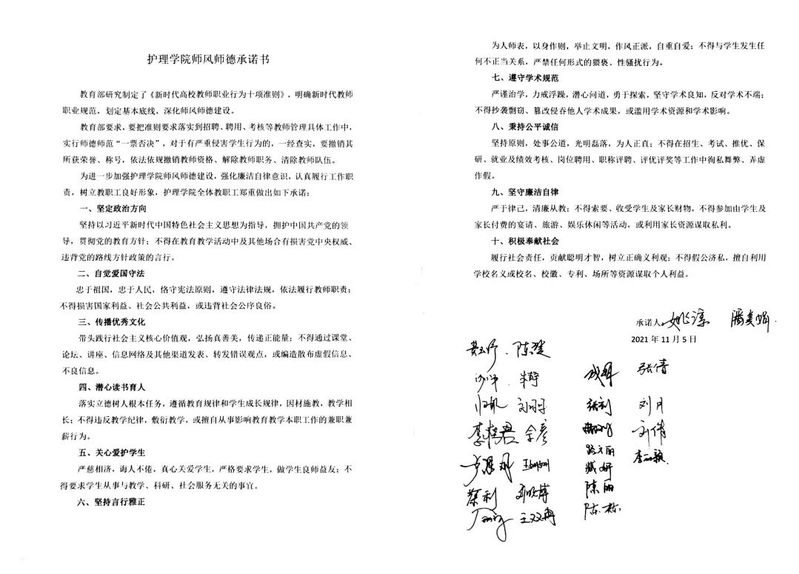 护理学院师风师德承诺书
教育部研究制定了《新时代高校教师职业行为十项准则》，明确新时代教师
职业规范，划定基本底线，深化师风师德建设。
教育部要求，要把准则要求落实到招聘、聘用、考核等教师管理具体工作中，
实行师德师范“一票否决”，对于有严重侵害学生行为的，一经查实，要撤销其
所获荣誉、称号，依法依规撤销教师资格、解除教师职务、清除教师队伍。
为进一步加强护理学院师风师德建设，强化廉洁自律意识，认真履行工作职
责，树立教职工良好形象，护理学院全体教职工郑重做出如下承诺：
一、坚定政治方向
坚持以习近平新时代中国特色社会主义思想为指导，拥护中国共产党的领
导，贯彻党的教育方针；不得在教育教学活动中及其他场合有损害党中央权威、
违背党的路线方针政策的言行。
二、自觉爱国守法
忠于祖国，忠于人民，恪守宪法原则，遵守法律法规，依法履行教师职责；
不得损害国家利益、社会公共利益，或违背社会公序良俗。
三、传播优秀文化
带头践行社会主义核心价值观，弘扬真善美，传递正能量；不得通过课堂、
论坛、讲座、信息网络及其他渠道发表、转发错误观点，或编造散布虚假信息、
不良信息。
四、潜心读书育人
落实立德树人根本任务，遵循教育规律和学生成长规律，因材施教，教学相
长；不得违反教学纪律，敷衍教学，或擅自从事影响教育教学本职工作的兼职兼
薪行为。
五、关心爱护学生
严慈相济，诲人不倦，真心关爱学生，严格要求学生，做学生良师益友；不
得要求学生从事与教学、科研、社会服务无关的事宜。
六、坚持言行雅正
为人师表，以身作则，举止文明，作风正派，自重自爱；不得与学生发生任
何不正当关系，严禁任何形式的猥亵、性骚扰行为。
七、遵守学术规范
严谨治学，力戒浮躁，潜心问道，勇于探索，坚守学术良知，反对学术不端；
不得抄袭剽窃、篡改侵吞他人学术成果，或滥用学术资源和学术影响。
八、秉持公平诚信
坚持原则，处事公道，光明磊落，为人正直；不得在招生、考试、推优、保
研、就业及绩效考核、岗位聘用、职称评聘、评优评奖等工作中徇私舞弊、弄虚
作假。
九、坚守廉洁自律
严于律己，清廉从教；不得索要、收受学生及家长财物，不得参加由学生及
家长付费的宴请、旅游、娱乐休闲等活动，或利用家长资源谋取私利。
十、积极奉献社会
履行社会责任，贡献聪明才智，树立正确义利观；不得假公济私，擅自利用
学校名义或校名、校徽、专利、场所等资源谋取个人利益。
承诺人
2021 年 11 月 5 日
张倩
刘月
刘倩
蔡利
陈丽
陈栋
王双冉